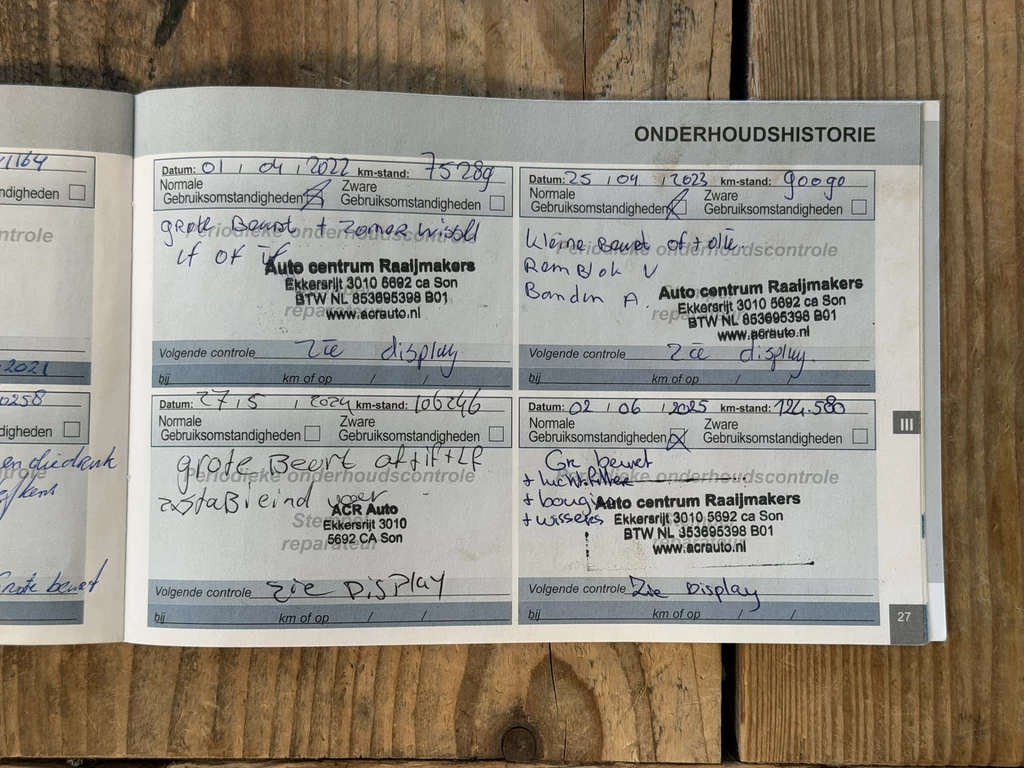 1164
ndigheden
ntrole
2021
0258
ndigheden
en diedank
Grote beurt
ONDERHOUDSHISTORIE
Datum: 01 / 04 / 2022 km-stand: 75289
Normale Gebruiksomstandigheden
Zware Gebruiksomstandigheden
grote Beurt + zomerwissel
Periodieke onderhoudscontrole
if of
Auto centrum Raaijmakers
Ekkersrijt 3010 5692 ca Son
BTW NL 853695398 B01
www.acrauto.nl
reparateur
Volgende controle zie display
bij km of op / /
Datum: 25 / 04 / 2023 km-stand: 90090
Normale Gebruiksomstandigheden
Zware Gebruiksomstandigheden
kleine Beurt of + olie.
Periodieke onderhoudscontrole
RemBlok V
Banden A.
Auto centrum Raaijmakers
Ekkersrijt 3010 5692 ca Son
BTW NL 853695398 B01
www.acrauto.nl
reparateur
Volgende controle zie display
bij km of op / /
Datum: 27 / 5 / 2024 km-stand: 106246
Normale Gebruiksomstandigheden
Zware Gebruiksomstandigheden
grote Beurt of + if + LF
Periodieke onderhoudscontrole
2x staBieind voor
ACR Auto
Ekkersrijt 3010
5692 CA Son
reparateur
Volgende controle zie Display
bij km of op / /
Datum: 02 / 06 / 2025 km-stand: 124.580
Normale Gebruiksomstandigheden
Zware Gebruiksomstandigheden
Gr. beurt
Periodieke onderhoudscontrole
+ luchtfilter
+ bougies
+ wissers
Auto centrum Raaijmakers
Ekkersrijt 3010 5692 ca Son
BTW NL 853695398 B01
www.acrauto.nl
Volgende controle Zie Display
bij km of op / /
III
27